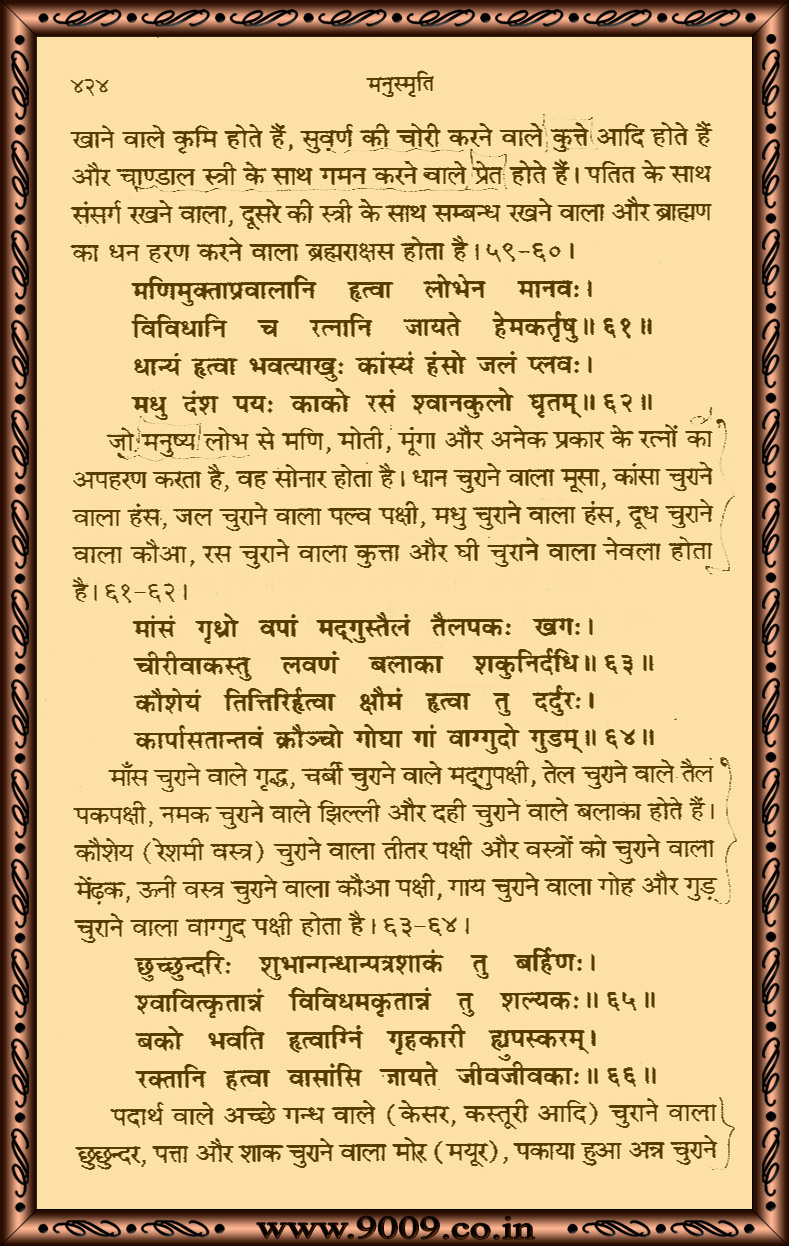 ४२४ मनुस्मृति
खाने वाले कृमि होते हैं, सुवर्ण की चोरी करने वाले कुत्ते आदि होते हैं
और चाण्डाल स्त्री के साथ गमन करने वाले प्रेत होते हैं। पतित के साथ
संसर्ग रखने वाला, दूसरे की स्त्री के साथ सम्बन्ध रखने वाला और ब्राह्मण
का धन हरण करने वाला ब्रह्मराक्षस होता है।५९-६०।
मणिमुक्ताप्रवालानि हृत्वा लोभेन मानवः।
विविधानि च रत्नानि जायते हेमकर्तृषु॥६१॥
धान्यं हृत्वा भवत्याखुः कांस्यं हंसो जलं प्लवः।
मधु दंश पयः काको रसं श्वानकुलो घृतम्॥६२॥
जो मनुष्य लोभ से मणि, मोती, मूंगा और अनेक प्रकार के रत्नों का
अपहरण करता है, वह सोनार होता है। धान चुराने वाला मूसा, कांसा चुराने
वाला हंस, जल चुराने वाला पल्व पक्षी, मधु चुराने वाला हंस, दूध चुराने
वाला कौआ, रस चुराने वाला कुत्ता और घी चुराने वाला नेवला होता
है।६१-६२।
मांसं गृध्रो वपां मद्गुस्तैलं तैलपकः खगः।
चीरीवाकस्तु लवणं बलाका शकुनिर्दधि॥६३॥
कौशेयं तित्तिरिर्हृत्वा क्षौमं हृत्वा तु दर्दुरः।
कार्पासतान्तवं क्रौञ्चो गोघा गां वाग्गुदो गुडम्॥६४॥
माँस चुराने वाले गृद्ध, चर्बी चुराने वाले मद्गुपक्षी, तेल चुराने वाले तैल
पकपक्षी, नमक चुराने वाले झिल्ली और दही चुराने वाले बलाका होते हैं।
कौशेय (रेशमी वस्त्र) चुराने वाला तीतर पक्षी और वस्त्रों को चुराने वाला
मेंढ़क, ऊनी वस्त्र चुराने वाला कौआ पक्षी, गाय चुराने वाला गोह और गुड़
चुराने वाला वाग्गुद पक्षी होता है।६३-६४।
छुच्छुन्दरिः शुभान्गन्धान्पत्रशाकं तु बर्हिणः।
श्वावित्कृतान्नं विविधमकृतान्नं तु शल्यकः॥६५॥
बको भवति हृत्वाग्निं गृहकारी ह्युपस्करम्।
रक्तानि हत्वा वासांसि जायते जीवजीवकाः॥६६॥
पदार्थ वाले अच्छे गन्ध वाले (केसर, कस्तूरी आदि) चुराने वाला
छुछुन्दर, पत्ता और शाक चुराने वाला मोर (मयूर), पकाया हुआ अन्न चुराने
www.9009.co.in